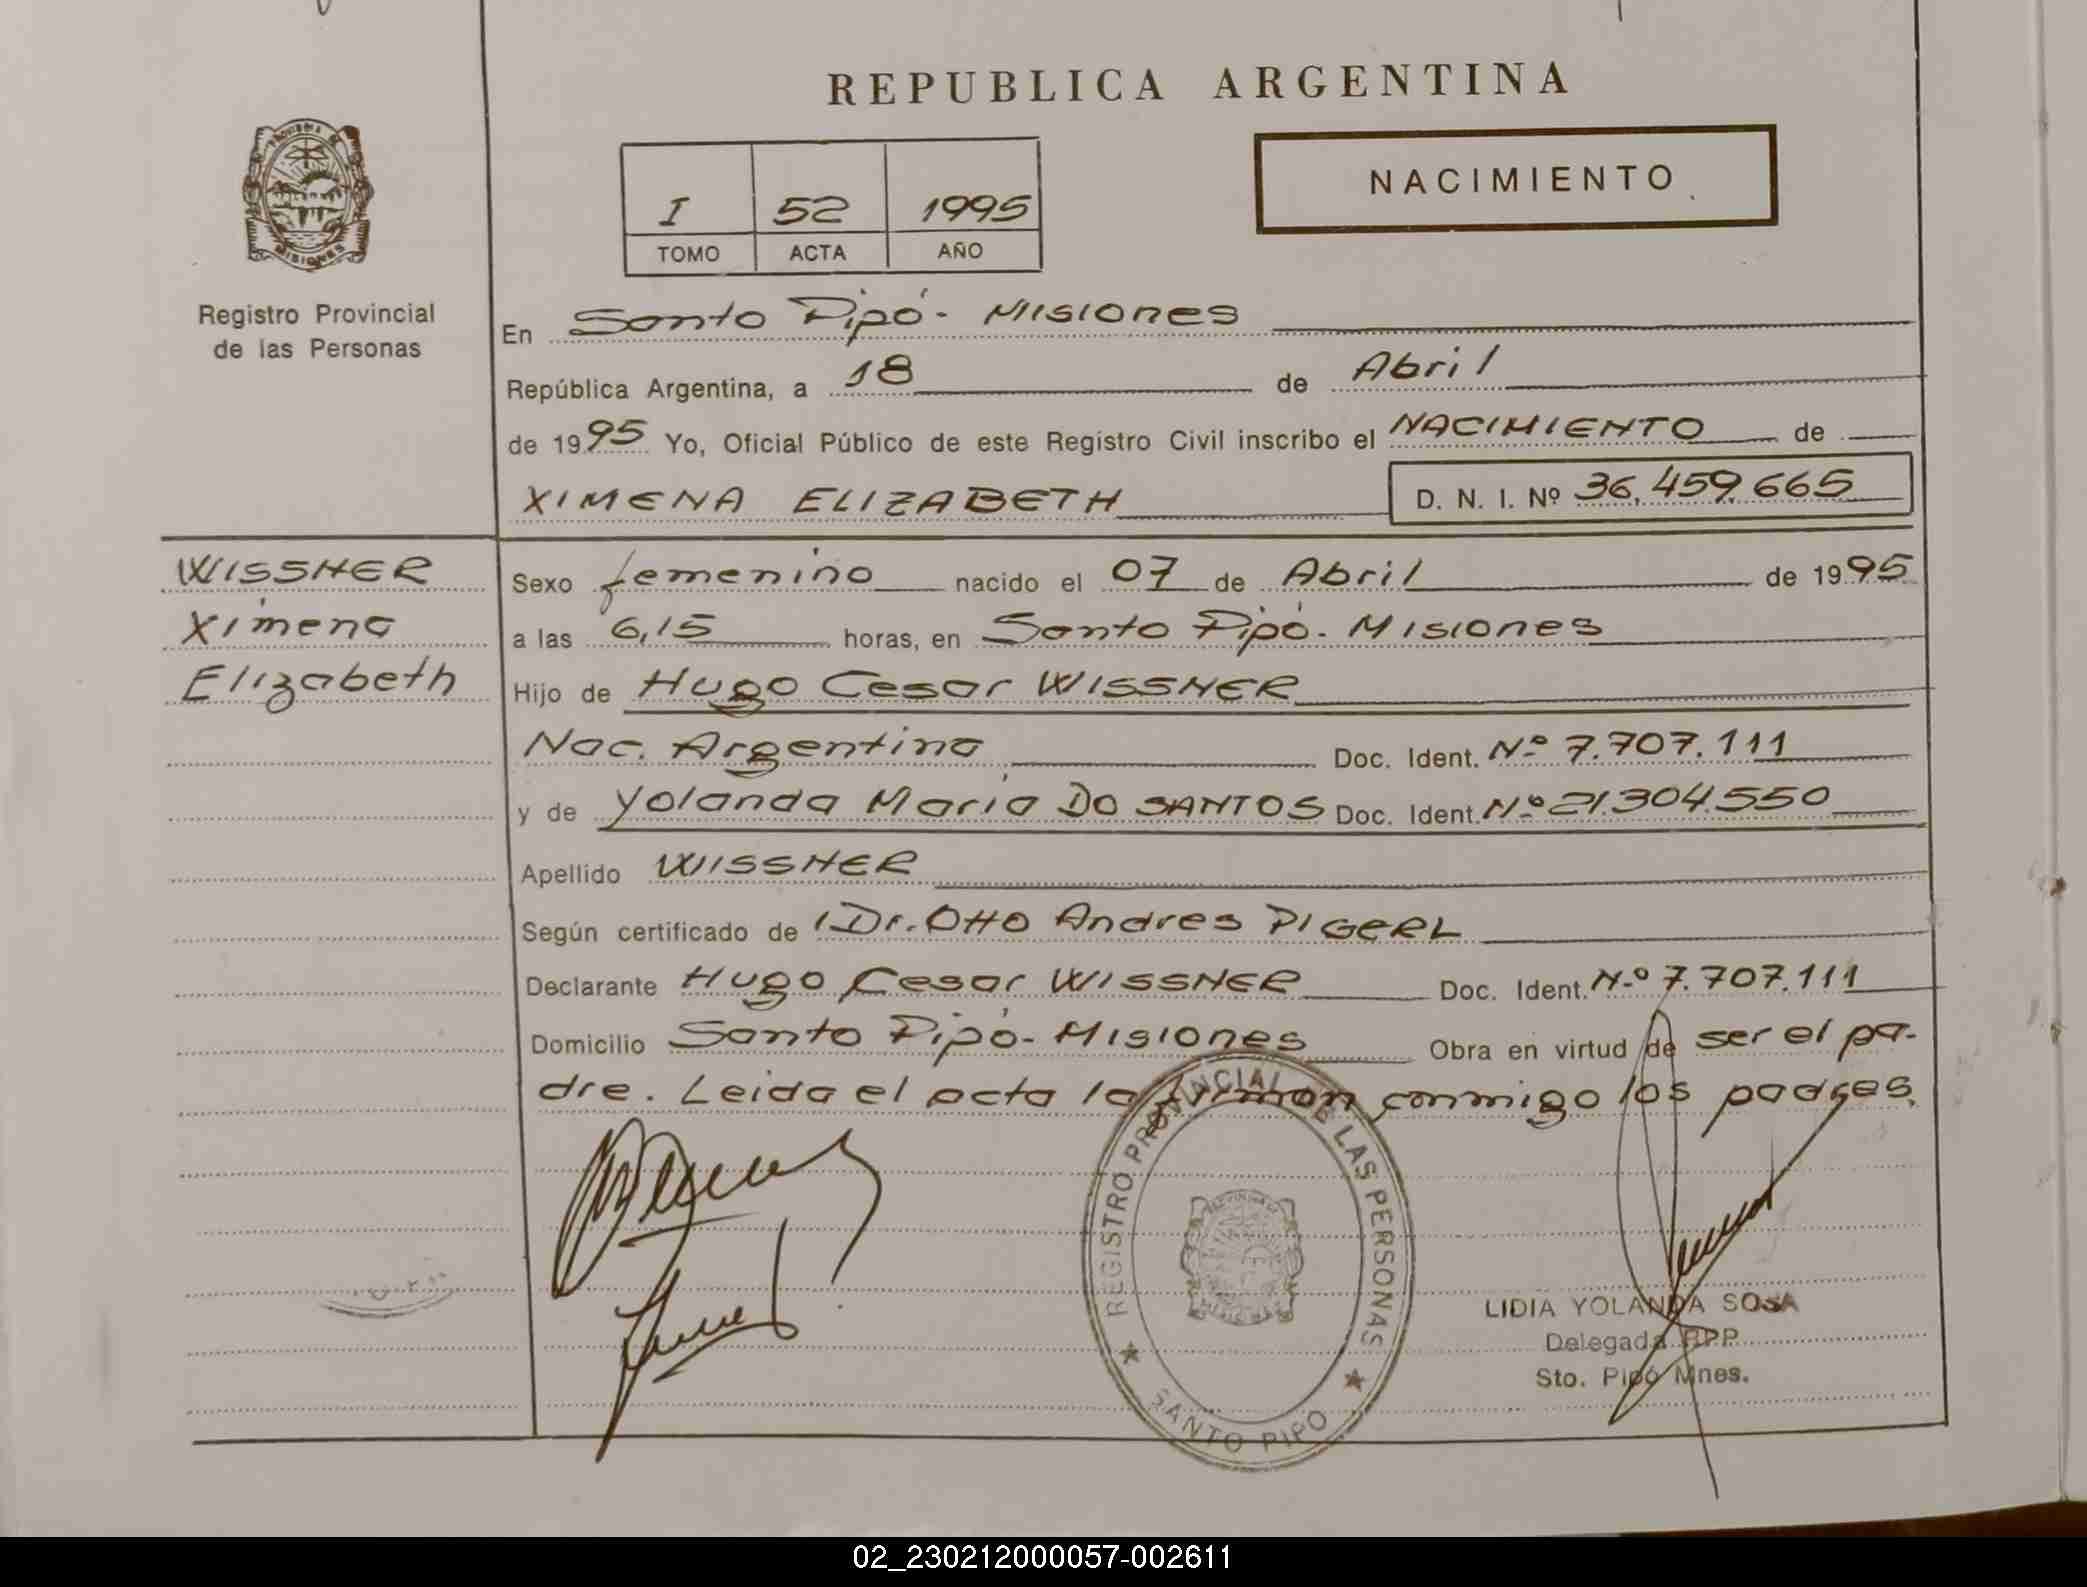 REPUBLICA ARGENTINA
PROVINCIA DE
MISIONES
Registro Provincial
de las Personas
I 52 1995
TOMO ACTA AÑO
NACIMIENTO
En Santo Pipó - Misiones
República Argentina, a 18 de Abril
de 1995 Yo, Oficial Público de este Registro Civil inscribo el NACIMIENTO de
XIMENA ELIZABETH D. N. I. Nº 36.459.665
WISSNER
Ximena
Elizabeth
Sexo femenino nacido el 07 de Abril de 1995
a las 6,15 horas, en Santo Pipó - Misiones
Hijo de Hugo Cesar WISSNER
Nac. Argentina Doc. Ident. Nº 7.707.111
y de Yolanda María DO SANTOS Doc. Ident. Nº 21.304.550
Apellido WISSNER
Según certificado de Dr. Otto Andres PIGERL
Declarante Hugo Cesar WISSNER Doc. Ident. Nº 7.707.111
Domicilio Santo Pipó - Misiones Obra en virtud de ser el pa-
dre. Leida el acta la firman conmigo los padres.
REGISTRO PROVINCIAL DE LAS PERSONAS
SANTO PIPO
LIDIA YOLANDA SOSA
Delegada RPP.
Sto. Pipó Mnes.
02_230212000057-002611